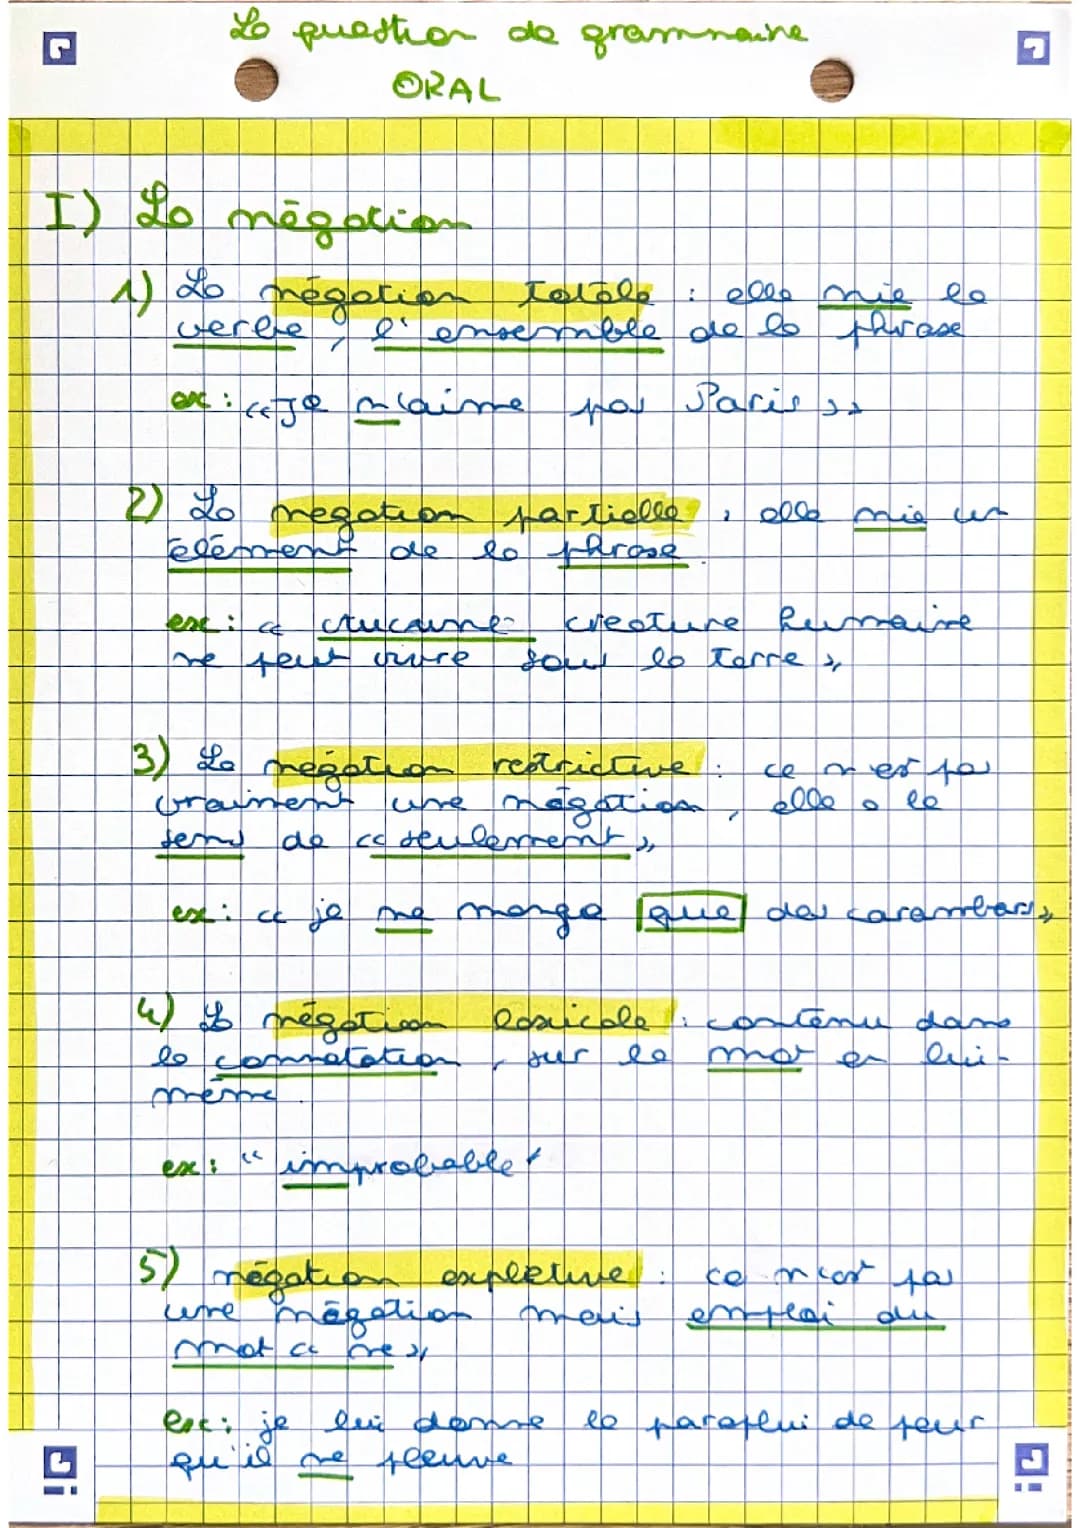 La question de grammaire
ORAL
I) La négation
1) La négation totale : elle nie le
verbe, l'ensemble de la phrase
ex : «Je n'aime pas Paris»
2) La negation partielle, elle nie un
élément de la phrase.
ex : « Aucune créature humaine
ne peut vivre sous la terre »
3) La négation restrictive : ce n'est pas
vraiment une négation, elle a le
sens de « seulement »
ex : « je ne mange que des carambars »
4) La négation lexicale : contenu dans
la connotation, sur le mot en lui-
même.
ex : " improbable "
5) négation explétive : ce n'est pas
une négation mais emploi du
mot « ne »
ex : je lui donne le paraplui de peur
qu'il ne pleuve